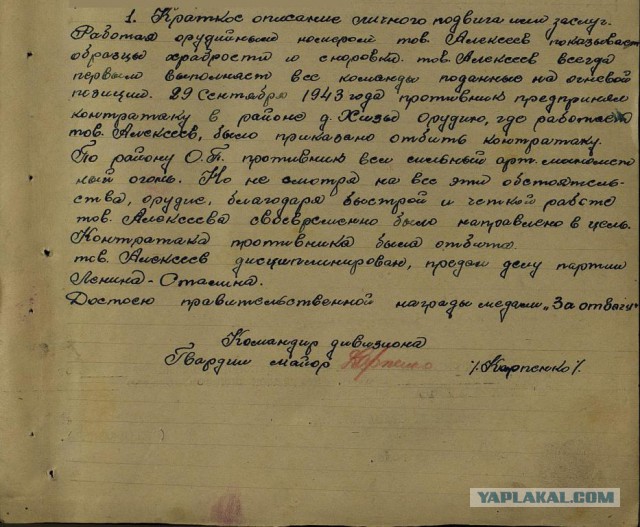 1. Краткое описание личного подвига или заслуг.
Работая орудийным номером тов. Алексеев показывает
образцы храбрости и сноровки. тов. Алексеев всегда
первым выполняет все команды поданные на огневой
позиции. 29 Сентября 1943 года противник предпринял
контратаку в районе д. орудию, где работает
тов. Алексеев, было приказано отбить контратаку.
По району О.П. противник вел сильный арт. минометный
огонь. Но не смотря на все эти обстоятель-
ства, орудие, благодаря быстрой и четкой работе
тов. Алексеева своевременно было направлено в цель.
Контратака противника была отбита.
тов. Алексеев дисциплинирован, предан делу партии
Ленина-Сталина.
Достоен правительственной награды медали „За отвагу"
Командир дивизиона
Гвардии майор Карпенко /.Карпенко/.
YAPLAKAL.COM